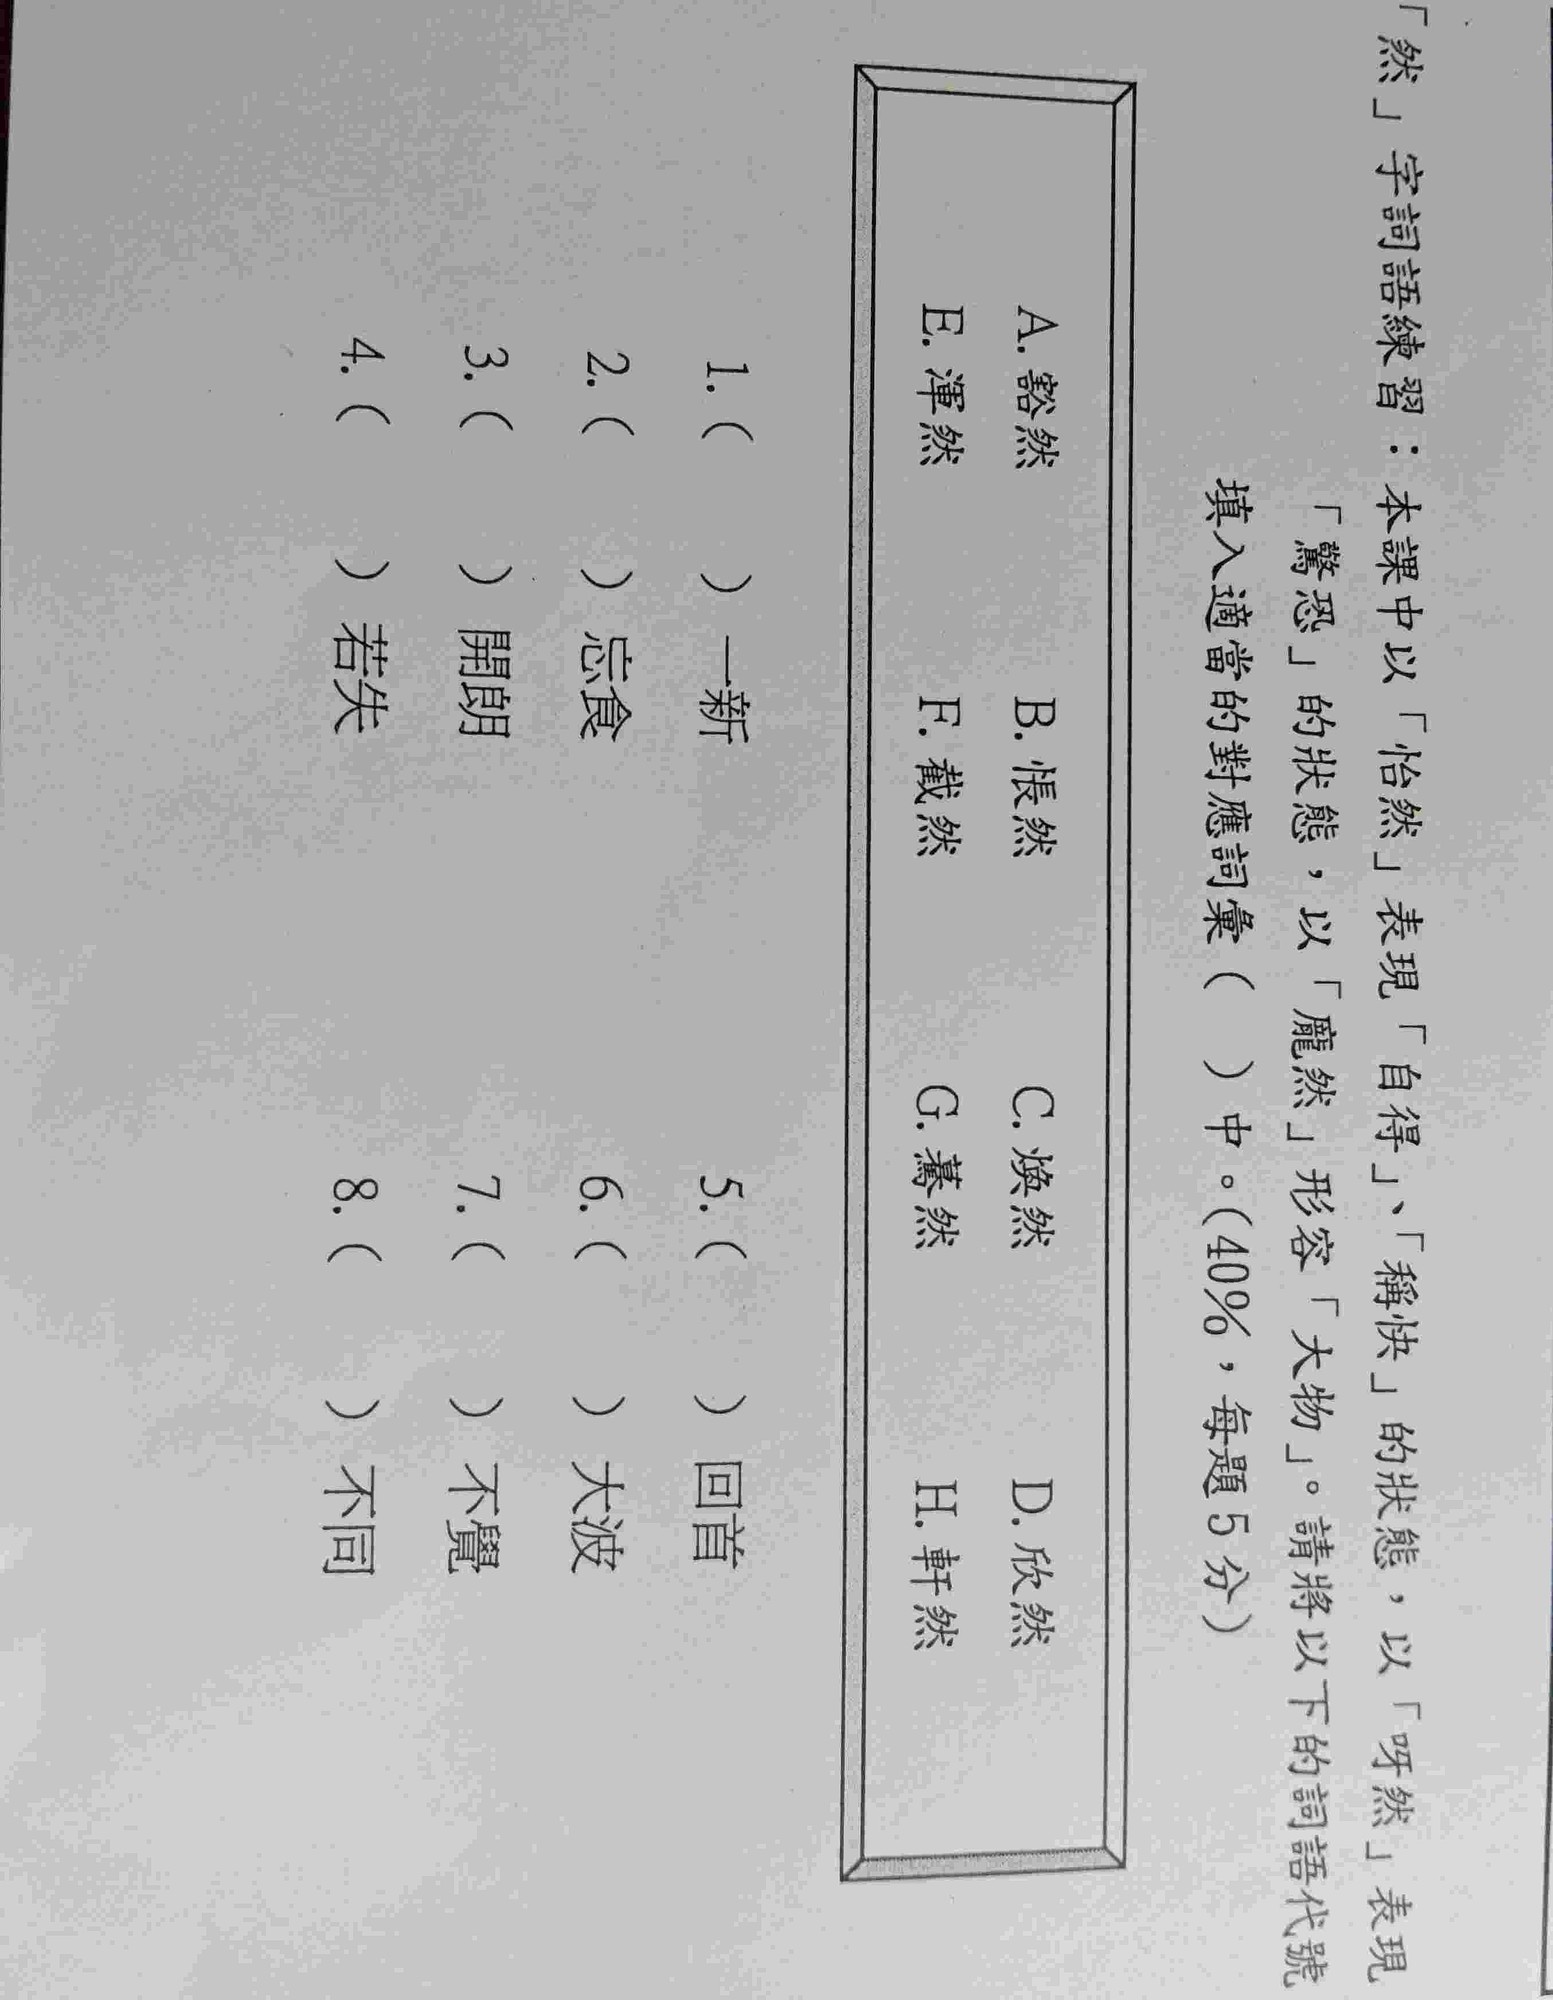 「然」字詞語練習：本課中以「怡然」表現「自得」、「稱快」的狀態，以「呀然」表現
「驚恐」的狀態，以「龐然」形容「大物」。請將以下的詞語代號
填入適當的對應詞彙（　）中。(40%，每題5分)
A. 豁然　B. 悵然　C. 煥然　D. 欣然
E. 渾然　F. 截然　G. 驀然　H. 軒然
1.（　）一新　5.（　）回首
2.（　）忘食　6.（　）大波
3.（　）開朗　7.（　）不覺
4.（　）若失　8.（　）不同